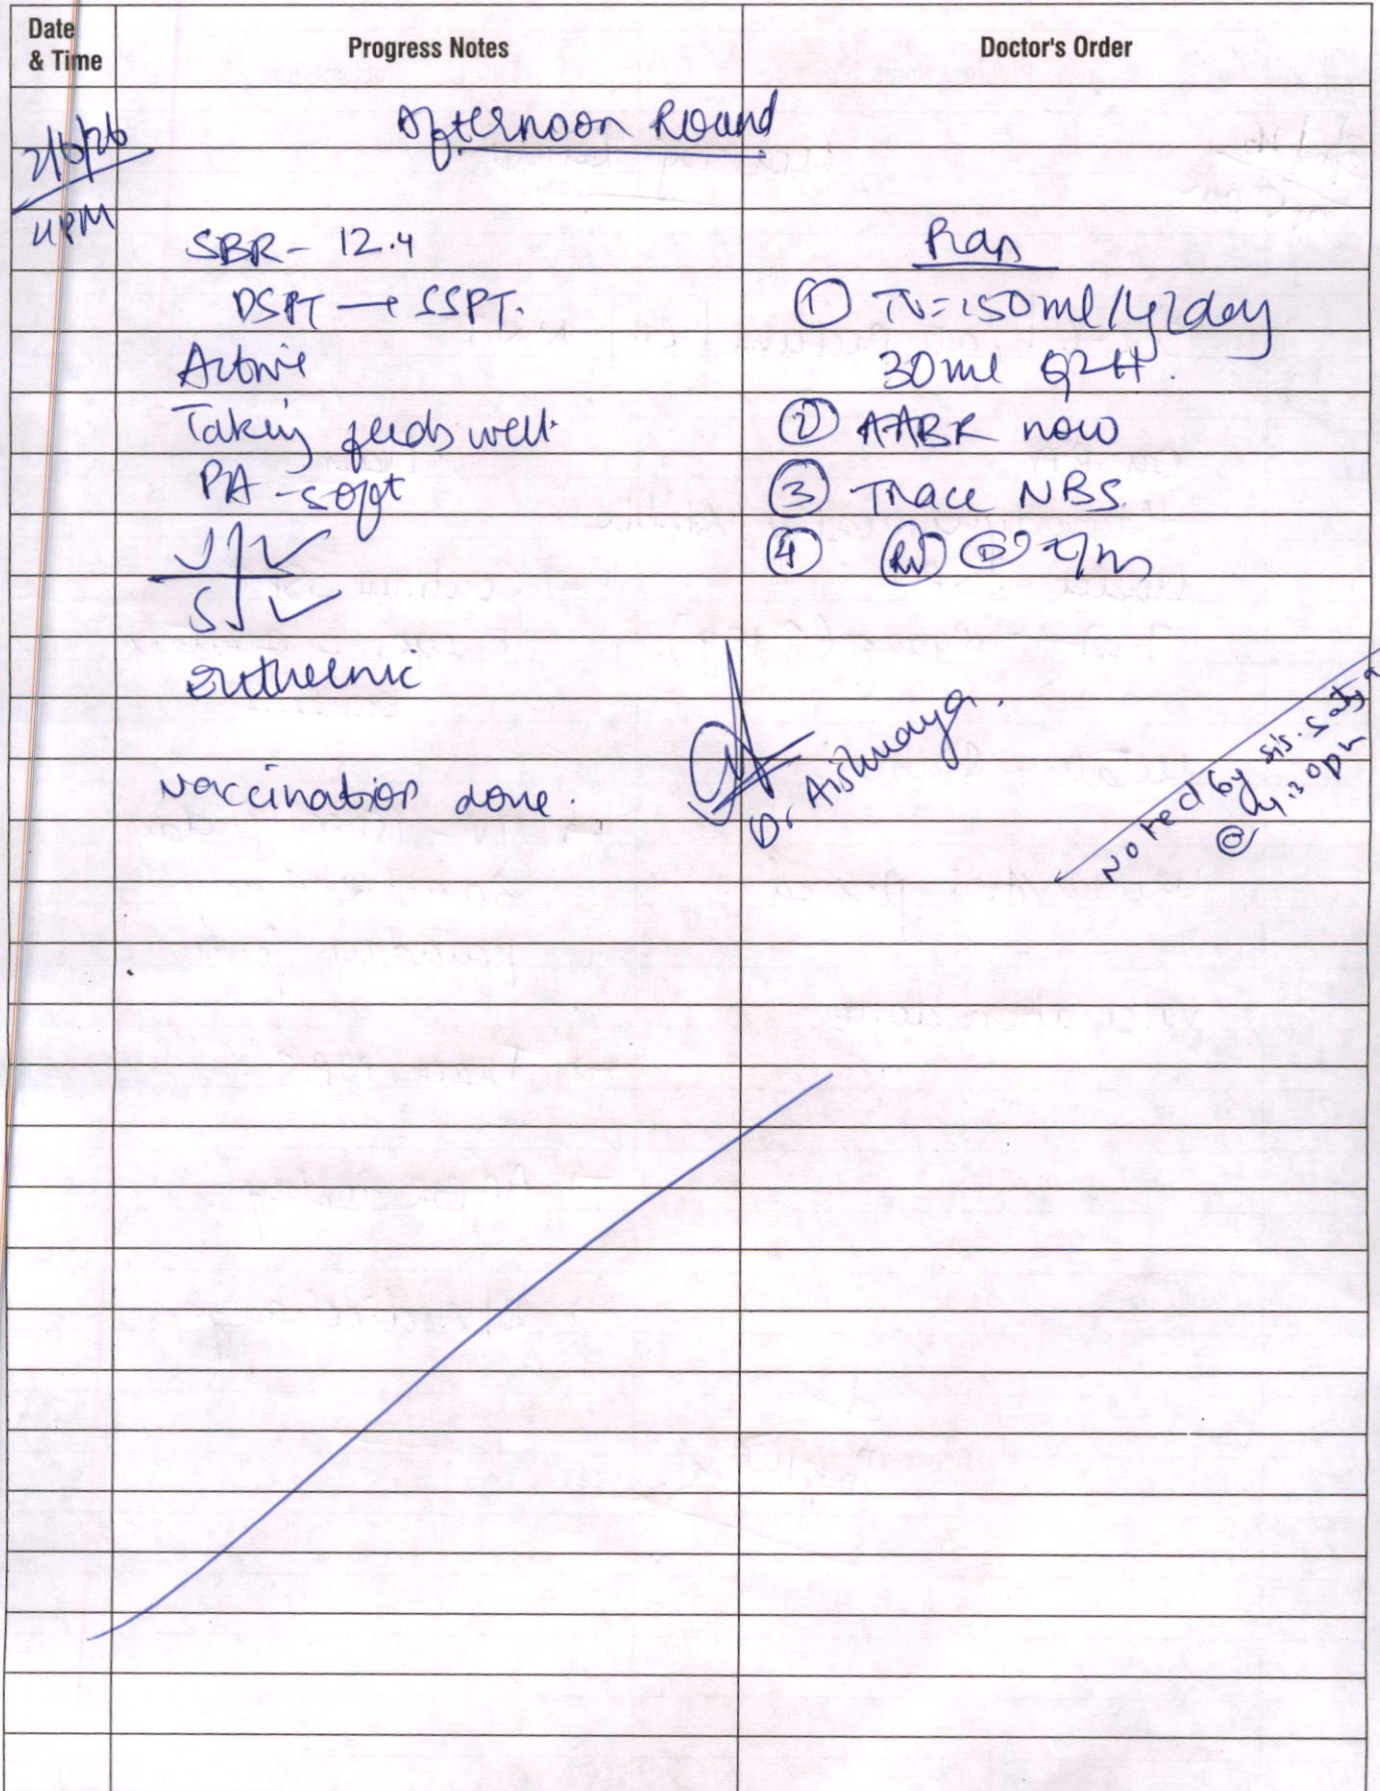 Date
& Time
Progress Notes
Doctor's Order
Afternoon Round
2/6/26
4PM
SBR - 12.4
DSPT → SSPT.
Active
Taking feeds well.
PA - soft
U ✓
S ✓
Euthermic
vaccination done.
Plan
① TV=150ml/kg/day
30ml Q2H.
② AABR now
③ Trace NBS.
④
Dr Aishwarya.
Noted by sis. satya
@ 4:30pm